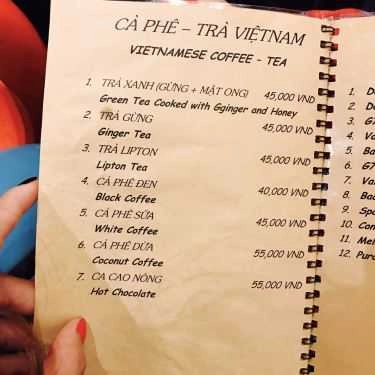 CÀ PHÊ – TRÀ VIỆTNAM
VIETNAMESE COFFEE - TEA
1. TRÀ XANH (GỪNG + MẬT ONG) 45,000 VND
Green Tea Cooked with Gginger and Honey
2. TRÀ GỪNG 45,000 VND
Ginger Tea
3. TRÀ LIPTON 45,000 VND
Lipton Tea
4. CÀ PHÊ ĐEN 40,000 VND
Black Coffee
5. CÀ PHÊ SỮA 45,000 VND
White Coffee
6. CÀ PHÊ DỪA 55,000 VND
Coconut Coffee
7. CA CAO NÓNG 55,000 VND
Hot Chocolate
1.
2.
3. G7
4.
5.
6. G7
7.
8.
9.
10.
11.
12.